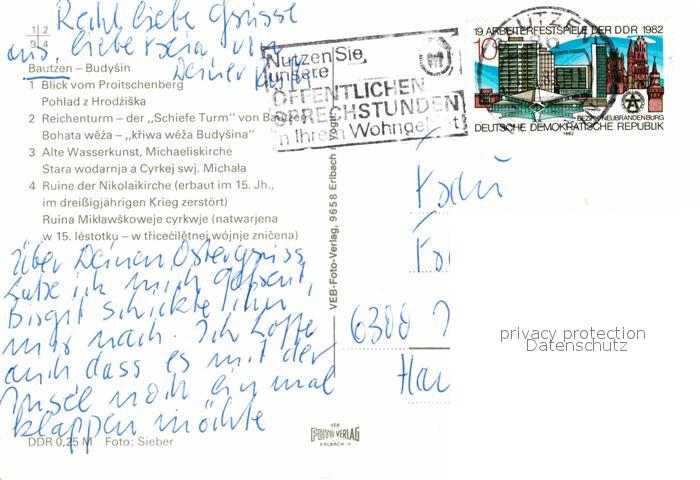 Recht liebe Grüsse
aus, liebe
von
Deiner
1 2
3 4
Bautzen – Budyšin
1 Blick vom Proitschenberg
Pohlad z Hrodźiška
2 Reichenturm – der „Schiefe Turm“ von Bautzen
Bohata wěža – „křiwa wěža Budyšina“
3 Alte Wasserkunst, Michaeliskirche
Stara wodarnja a Cyrkej swj. Michała
4 Ruine der Nikolaikirche (erbaut im 15. Jh.,
im dreißigjährigen Krieg zerstört)
Ruina Mikławškoweje cyrkwje (natwarjena
w 15. lěstotku – w třicećilětnej wójnje zničena)
Über Deinen Ostergruss
habe ich mich gefreut,
Birgit schickte ihn
mir nach. Ich hoffe
auch dass es mit der
Insel noch einmal
klappen möchte
DDR 0,25 M Foto: Sieber
VEB-Foto-Verlag, 9658 Erlbach
VEB
FOTO VERLAG
ERLBACH/V.
Nutzen Sie
unsere
ÖFFENTLICHEN
SPRECHSTUNDEN
in Ihrem Wohngebiet!
BAUTZEN
19. ARBEITERFESTSPIELE DER DDR 1982
10
BEZIRK NEUBRANDENBURG
DEUTSCHE DEMOKRATISCHE REPUBLIK
1982
Frau
6300
privacy protection
Datenschutz